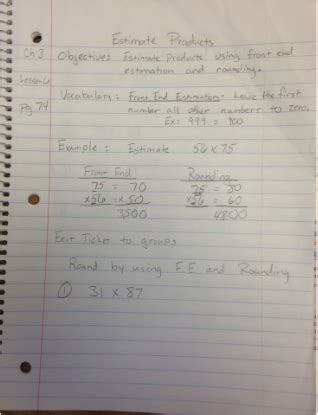 Estimate Products
Ch.3 Objective: Estimate Products using front end
estimation and rounding.
Lesson 6
Vocabulary: Front End Estimation - Leave the first
Pg. 74 number all other numbers to zero.
Ex: 999 = 900
Example: Estimate 56 x 75
Front End Rounding
75 = 70 75 = 80
x56 = x50 x56 = 60
3,500 4800
Exit Ticket to groves
Round by using F.E and Rounding
① 31 x 87